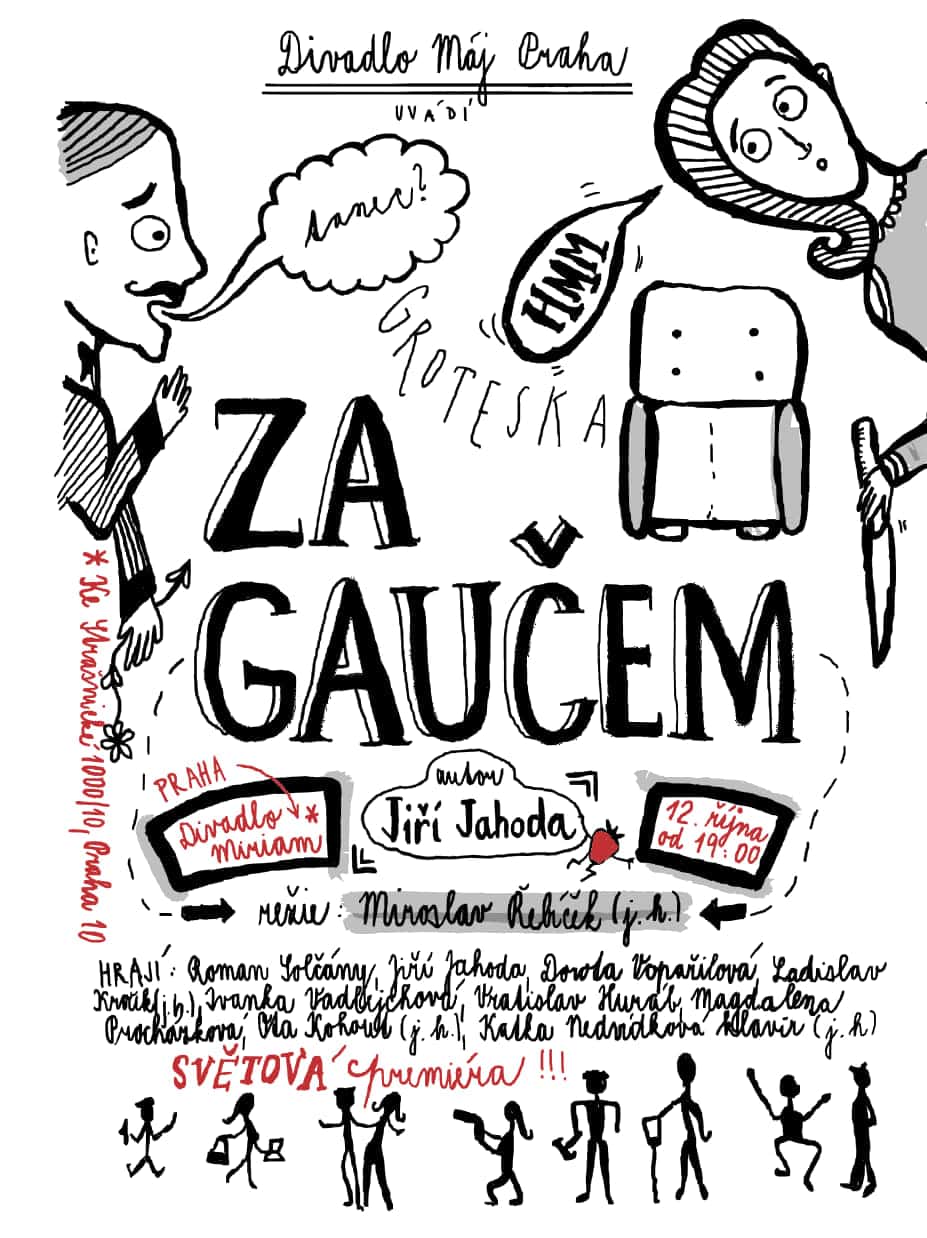 Divadlo Máj Praha
UVÁDÍ
tanec?
HMM
GROTESKA
ZA
GAUČEM
* Ke Strašnické 1000/10, Praha 10
PRAHA
Divadlo *
Miriam
autor
Jiří Jahoda
12. října
od 19:00
režie: Miroslav Řebíček (j.h.)
HRAJÍ: Roman Solčány, Jiří Jahoda, Dorota Vopařilová, Ladislav
(j.h.), Ivanka Vadlejchová, Vratislav Huráb, Magdalena
Procházková, Ota Kohout (j.h.), Katka Nedvídková Klavír (j.h)
SVĚTOVÁ premiéra !!!